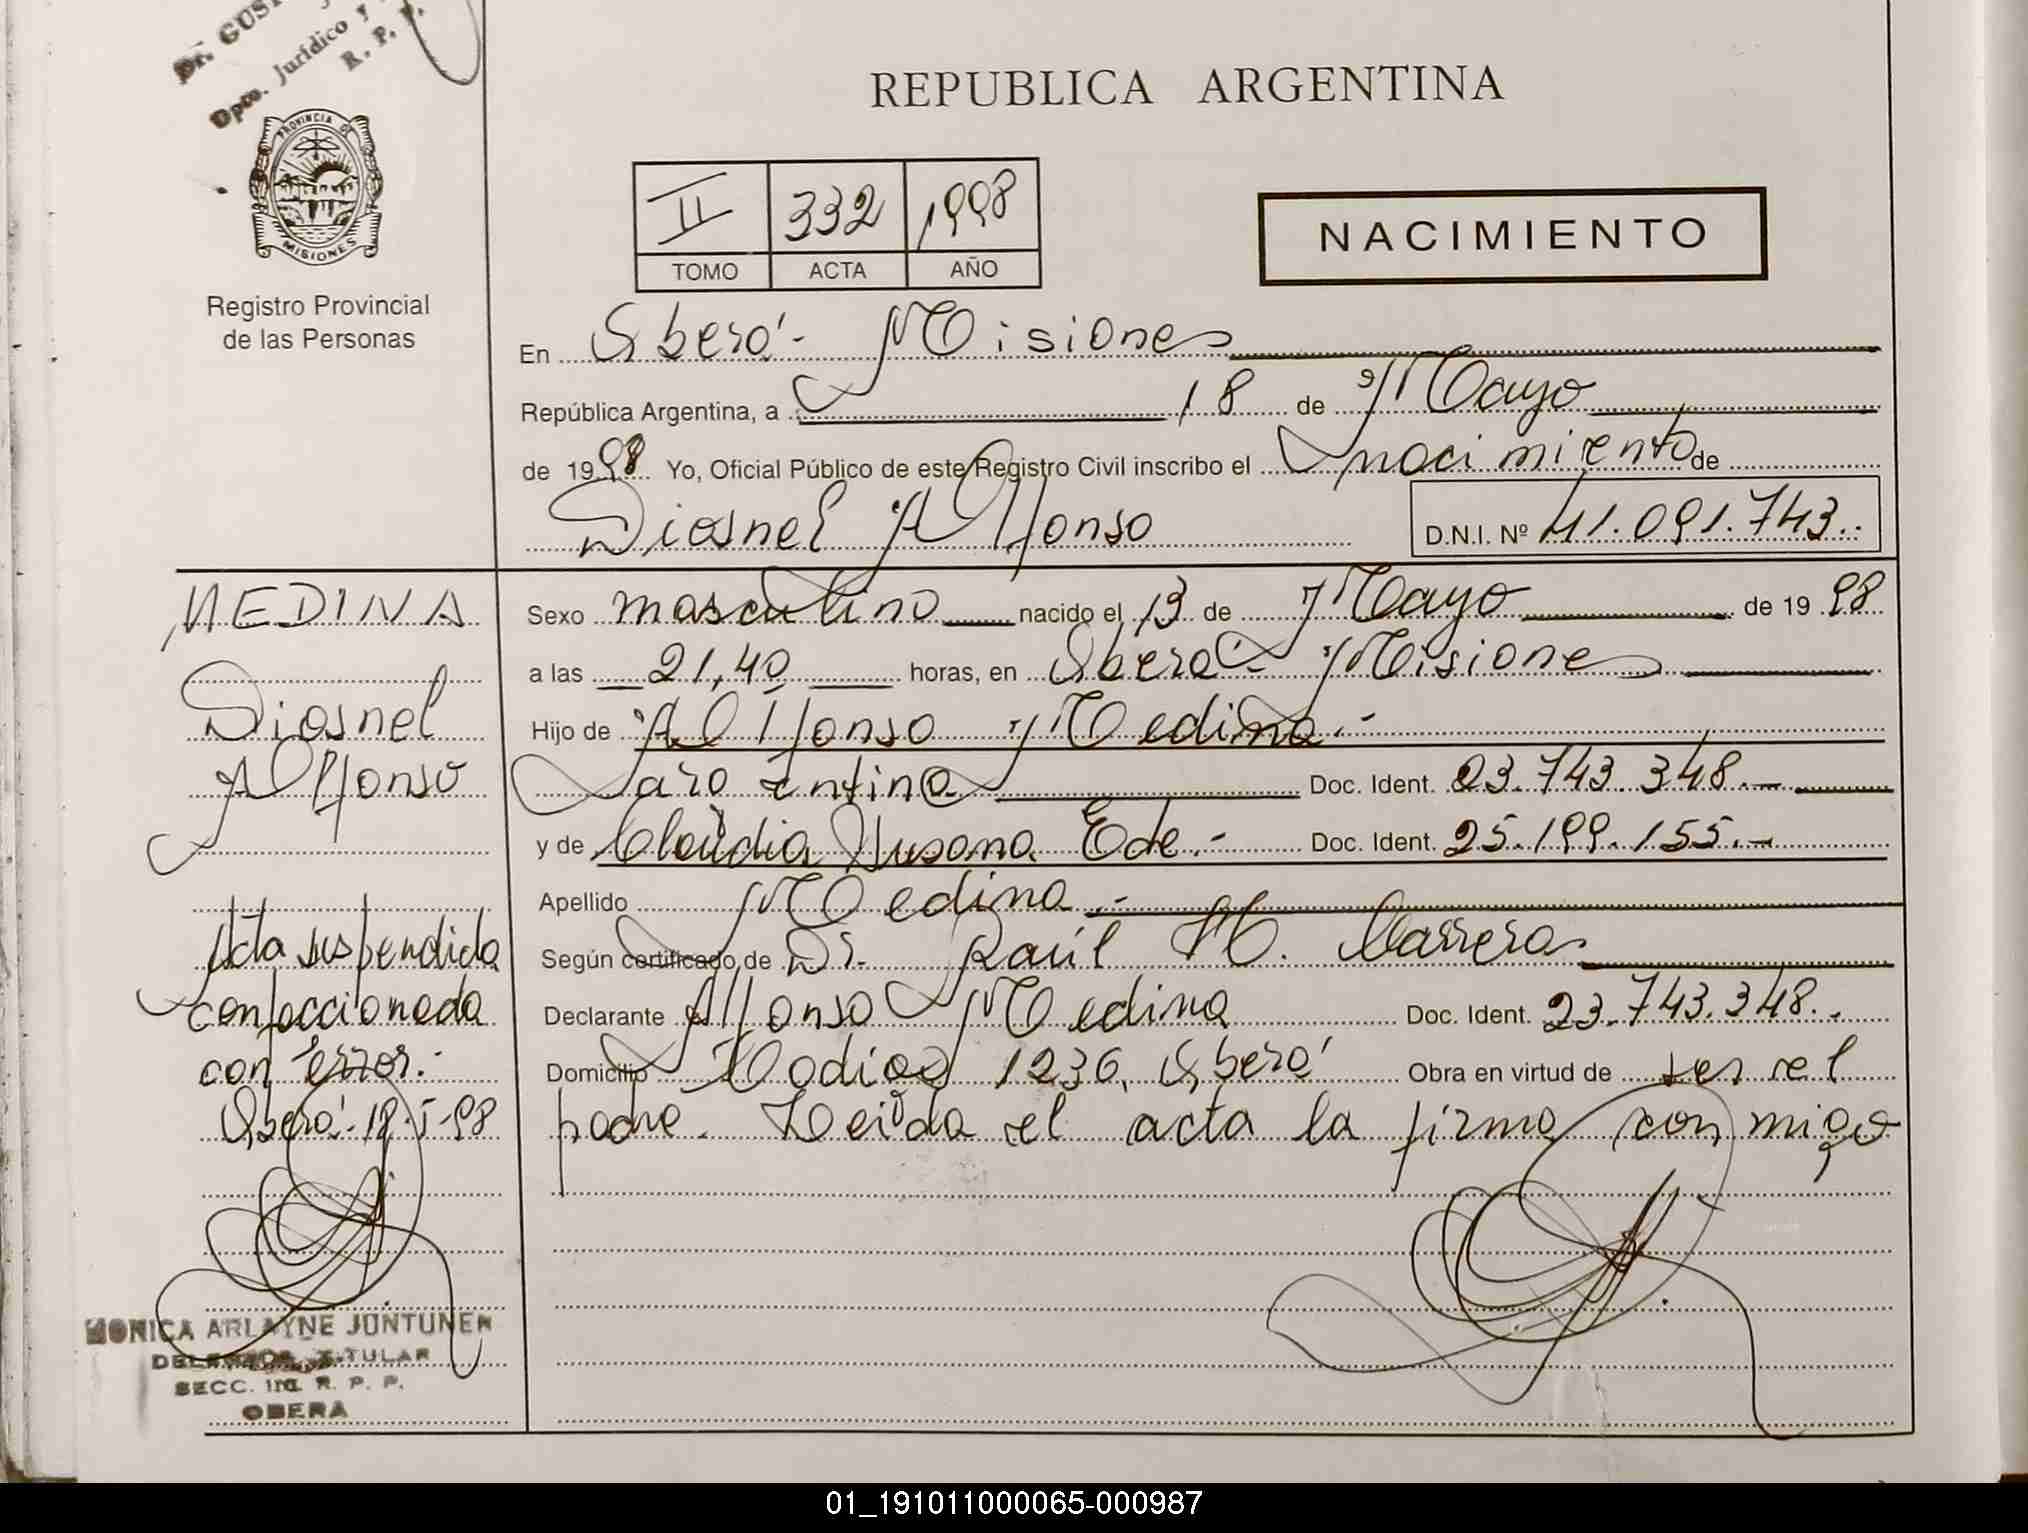 Dr. GUST
Dpto. Jurídico y
R. P. P.
PROVINCIA DE
MISIONES
Registro Provincial
de las Personas
REPUBLICA ARGENTINA
II 332 1998
TOMO ACTA AÑO
NACIMIENTO
En Oberá - Misiones
República Argentina, a 18 de Mayo
de 1998 Yo, Oficial Público de este Registro Civil inscribo el nacimiento de
Diosnel Alfonso D.N.I. Nº 41.091.743..
MEDINA
Diosnel
Alfonso
Sexo masculino nacido el 13 de Mayo de 1998
a las 21,40 horas, en Oberá - Misiones
Hijo de Alfonso Medina.-
argentino Doc. Ident. 23.743.348.-
y de Claudia Susana Ede.- Doc. Ident. 25.199.155.-
Apellido Medina.-
Según certificado de Dr. Raúl H. Carrera
Declarante Alfonso Medina Doc. Ident. 23.743.348..
Domicilio 1236, Oberá Obra en virtud de ser el
padre. Leida el acta la firma conmigo
Acta suspendida
confeccionada
con error.-
Oberá - 18-5-98
MONICA ARLAYNE JUNTUNEN
DELEGADA TITULAR
SECC. R. P. P.
OBERA
01_191011000065-000987